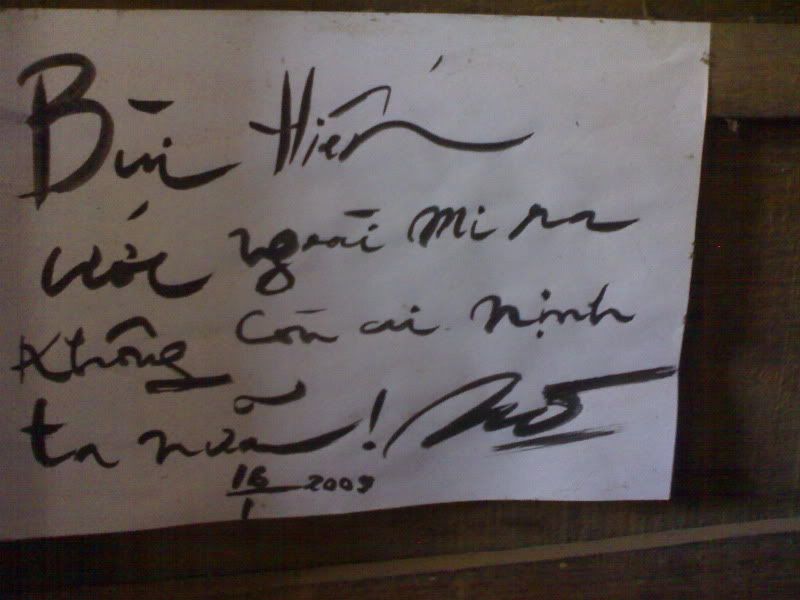 Bùi Hiển
ước ngoài mi ra
không còn ai nịnh
ta nữa!
16/1 2009